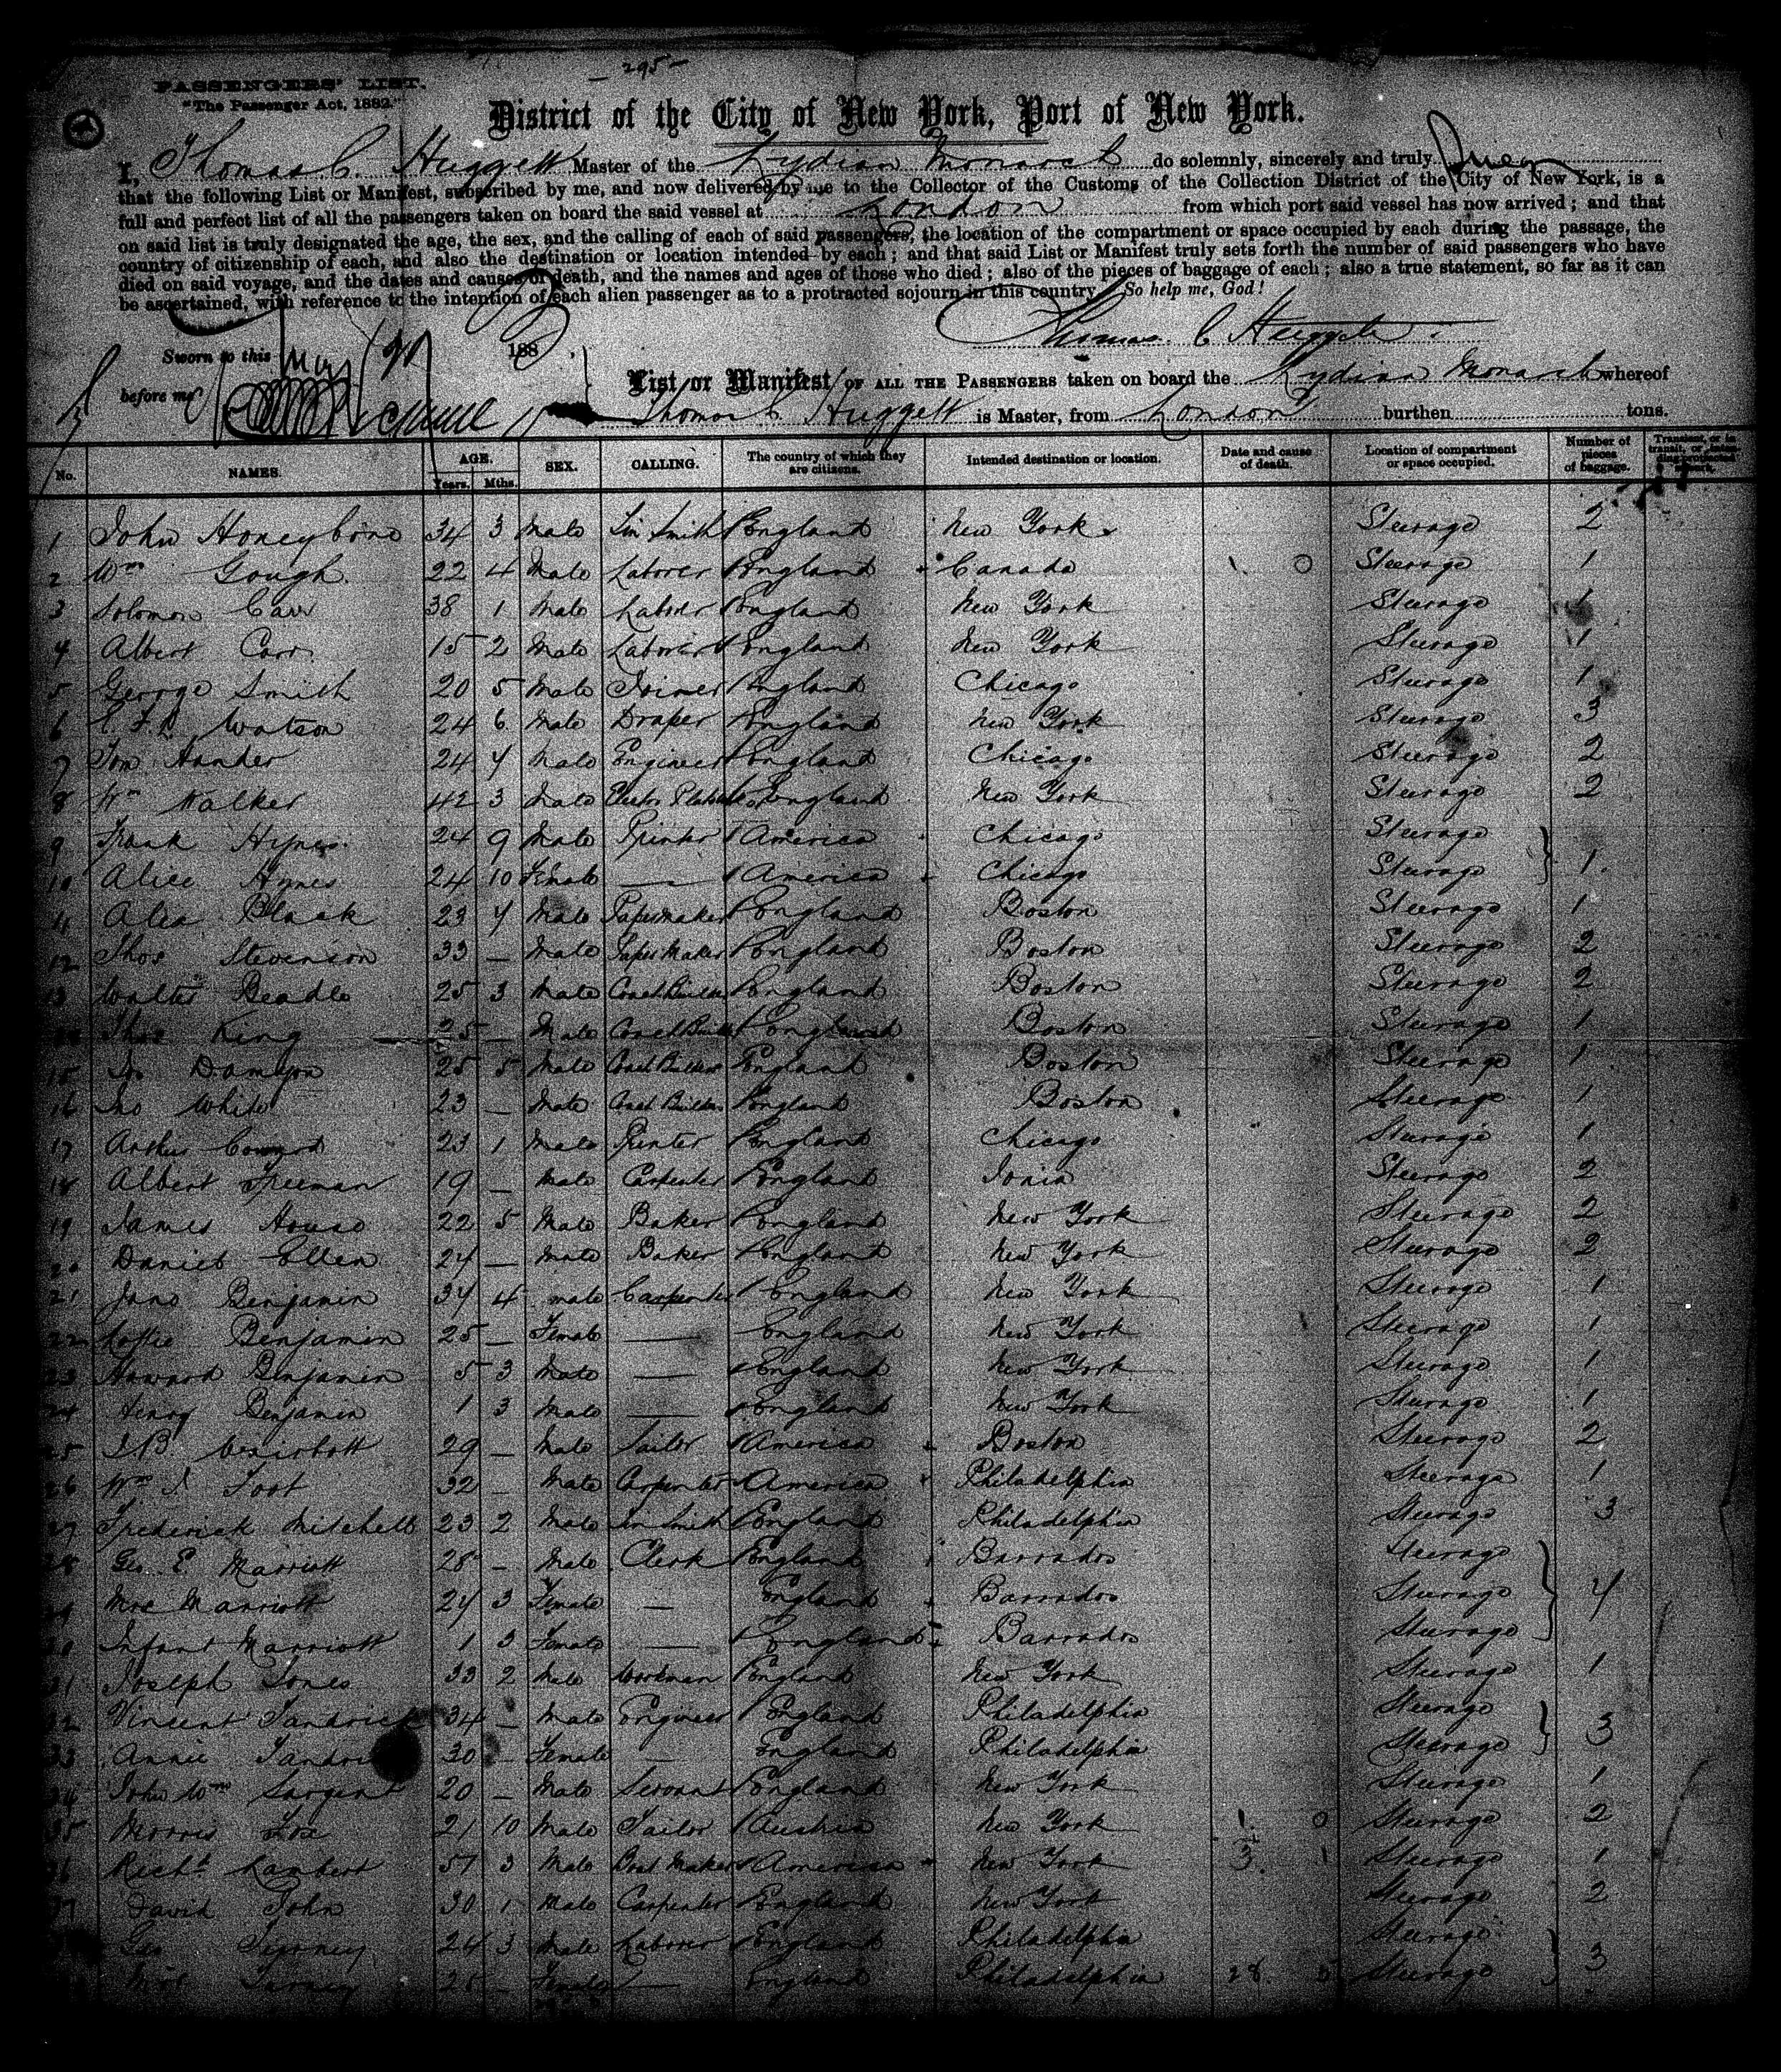 — 295 —
PASSENGERS' LIST.
"The Passenger Act, 1882."
District of the City of New York, Port of New York.
I, Thomas C. Huggett Master of the Lydian Monarch do solemnly, sincerely and truly swear
that the following List or Manifest, subscribed by me, and now delivered by me to the Collector of the Customs of the Collection District of the City of New York, is a
full and perfect list of all the passengers taken on board the said vessel at London from which port said vessel has now arrived; and that
on said list is truly designated the age, the sex, and the calling of each of said passengers, the location of the compartment or space occupied by each during the passage, the
country of citizenship of each, and also the destination or location intended by each; and that said List or Manifest truly sets forth the number of said passengers who have
died on said voyage, and the dates and causes of death, and the names and ages of those who died; also of the pieces of baggage of each; also a true statement, so far as it can
be ascertained, with reference to the intention of each alien passenger as to a protracted sojourn in this country. So help me, God!
Thomas C Huggett
Sworn to this May 188
before me
List or Manifest OF ALL THE PASSENGERS taken on board the Lydian Monarch whereof
Thomas C. Huggett is Master, from London burthen tons.
No. NAMES. AGE. Years. Mths. SEX. CALLING. The country of which they are citizens. Intended destination or location. Date and cause of death. Location of compartment or space occupied. Number of pieces of baggage. Transient, or in transit, or intending protracted sojourn.
1 John Honeybone 34 3 Male Tin Smith England New York Steerage 2
2 Wm Gough 22 4 Male Laborer England Canada 1. 0 Steerage 1
3 Solomon Carr 38 1 Male Laborer England New York Steerage 1
4 Albert Carr 15 2 Male Laborer England New York Steerage 1
5 George Smith 20 5 Male Joiner England Chicago Steerage 1
6 Watson 24 6 Male Draper England New York Steerage 3
7 Tom Hunter 24 4 Male Engineer England Chicago Steerage 2
8 Wm Walker 42 3 Male Electro Plater England New York Steerage 2
9 Frank Hynes 24 9 Male Printer America Chicago Steerage
10 Alice Hynes 24 10 Female — America Chicago Steerage 1
11 Alex Black 23 4 Male Papermaker England Boston Steerage 1
12 Thos Stevenson 33 — Male Paper Maker England Boston Steerage 2
13 Walter Beadle 25 3 Male Coach Builder England Boston Steerage 2
14 Thos King 25 — Male Coach Builder England Boston Steerage 1
15 25 5 Male Coach Builder England Boston Steerage 1
16 Jno White 23 — Male Coach Builder England Boston Steerage 1
17 Arthur 23 1 Male Printer England Chicago Steerage 1
18 Albert Freeman 19 — Male Carpenter England Ionia Steerage 2
19 James House 22 5 Male Baker England New York Steerage 2
20 Daniel Ellen 24 — Male Baker England New York Steerage 2
21 Benjamin 34 4 male Carpenter England New York Steerage 1
22 Benjamin 25 — Female — England New York Steerage 1
23 Howard Benjamin 5 3 Male — England New York Steerage 1
24 Henry Benjamin 1 3 Male — England New York Steerage 1
25 29 — Male Sailor America Boston Steerage 2
26 Wm Foot 32 — Male Carpenter America Philadelphia Steerage 1
27 Frederick Mitchell 23 2 Male Tin Smith England Philadelphia Steerage 3
28 Geo. E. Marriott 28 — Male Clerk England Barrados Steerage
29 Mrs Marriott 24 3 Female — England Barrados Steerage 4
30 Infant Marriott 1 3 Female — England Barrados Steerage
31 Joseph Jones 33 2 Male Workman England New York Steerage 1
32 Vincent 34 — Male Engineer England Philadelphia Steerage
33 Annie 30 — Female — England Philadelphia Steerage 3
34 John Wm Sargent 20 — Male Servant England New York Steerage 1
35 Morris Fox 21 10 Male Tailor Austria New York 1. 0 Steerage 2
36 Richd Lambert 57 3 Male Boot Maker America New York 3. 1 Steerage 1
37 David John 30 1 Male Carpenter England New York Steerage 2
Geo 24 3 Male Laborer England Philadelphia Steerage
Mrs 25 — Female — England Philadelphia 28. 5 Steerage 3